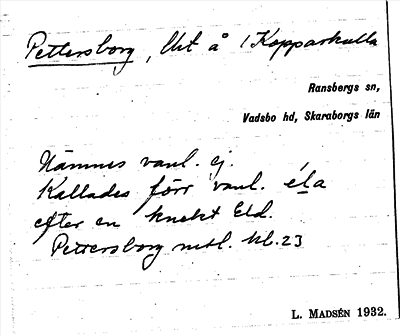 Pettersborg, Uet å 1 Kopparkulla
Ransbergs sn,
Vadsbo hd, Skaraborgs län
Nämnes vanl. ej.
Kallades förr vanl. éla
efter en knekt Eld.
Pettersborg mtl. bl. 23
L. MADSÉN 1932.